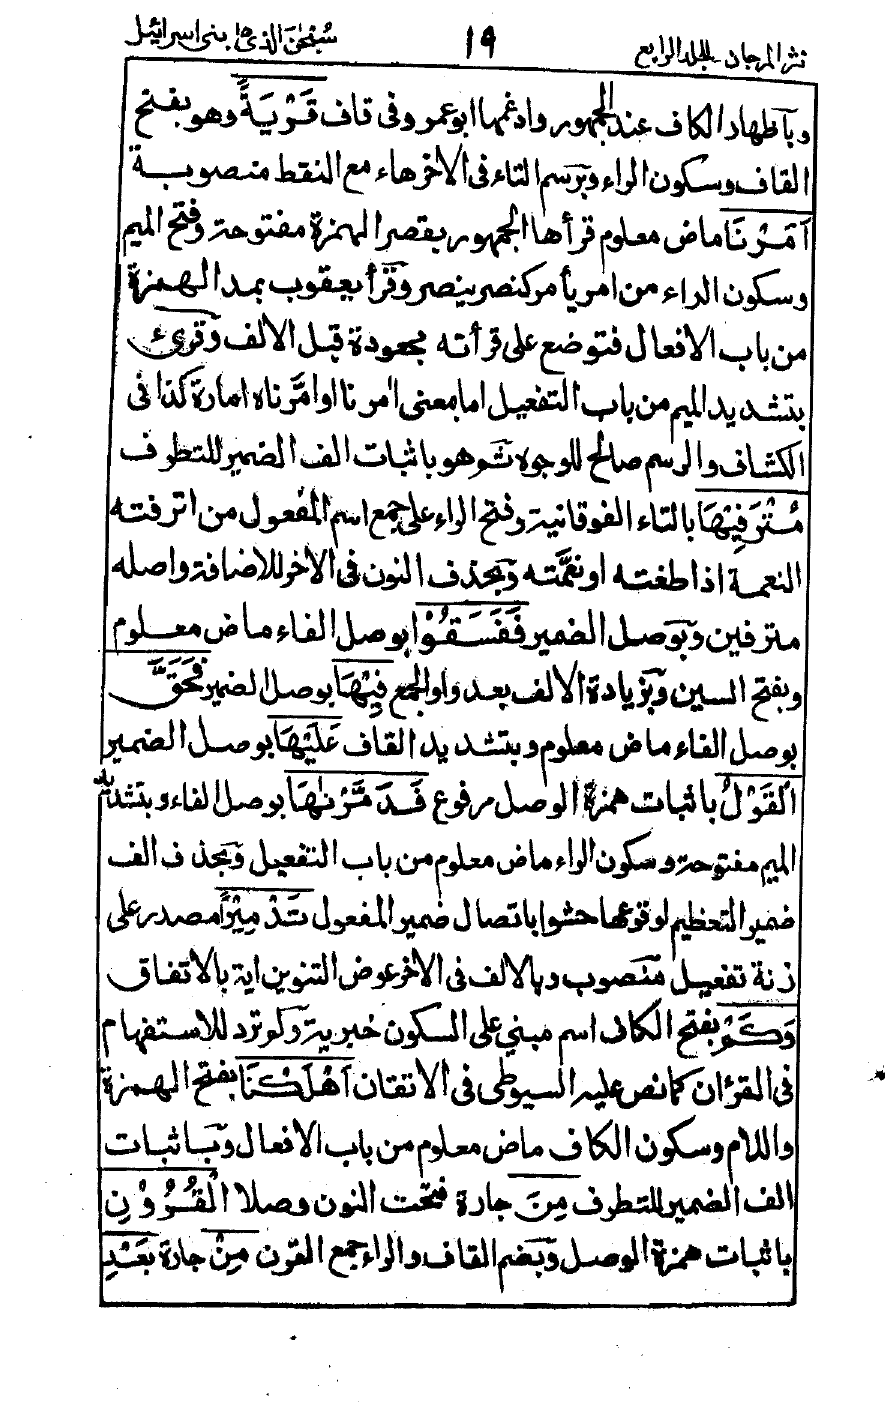 نثر المرجان الجلد الرابع ١٩ سبحٰن الذى ١٥ بنى اسرائيل
وبآظهار الكاف عند الجمهور وادغمها ابو عمرو فى قاف قَرْيَةً وهو بفتح
القاف وسكون الراء وبرسم التاء فى الاٰخر هاء مع النقط منصوبة
اَمَرْنَا ماض معلوم قرأها الجمهور بقصر الهمزة مفتوحة وفتح الميم
وسكون الراء من امر يأمر كنصر ينصر وقرأ يعقوب بمد الهمزة
من باب الافعال فتوضع على قرأته مجعودة قبل الالف وقرئ
بتشديد الميم من باب التفعيل اما بمعنى اٰمرنا او امّرناه امارة كذا فى
الكشاف والرسم صالح للوجوه ثم هو باثبات الف الضمير للتطرف
مُتْرَفِيْهَا بالتاء الفوقانية وفتح الراء على جمع اسم المفعول من اترفته
النعمة اذا طغته او نعّمته وبحذف النون فى الاٰخر للاضافة واصله
مترفين وبوصل الضمير فَفَسَقُوْا بوصل الفاء ماض معلوم
وبفتح السين وبزيادة الالف بعد واو الجمع فِيْهَا بوصل الضمير فَحَقَّ
بوصل الفاء ماض معلوم وبتشديد القاف عَلَيْهَا بوصل الضمير
الْقَوْلُ باثبات همزة الوصل مرفوع فَدَمَّرْنٰهَا بوصل الفاء وبتشديد
الميم مفتوحة وسكون الراء ماض معلوم من باب التفعيل وبحذف الف
ضمير التعظيم لوقوعها حشوا باتصال ضمير المفعول تَدْمِيْرًا مصدر على
زنة تفعيل منصوب وبالالف فى الاٰخر عوض التنوين اية بالاتفاق
وَكَمْ بفتح الكاف اسم مبنى على السكون خبرية ولم ترد للاستفهام
فى القرءان كما نص عليه السيوطى فى الاتقان اَهْلَكْنَا بفتح الهمزة
واللام وسكون الكاف ماض معلوم من باب الافعال وباثبات
الف الضمير للتطرف مِنَ جارة فتحت النون وصلا الْقُرُوْنِ
باثبات همزة الوصل وبضم القاف والراء جمع القرن مِنْ جارة بَعْدِ